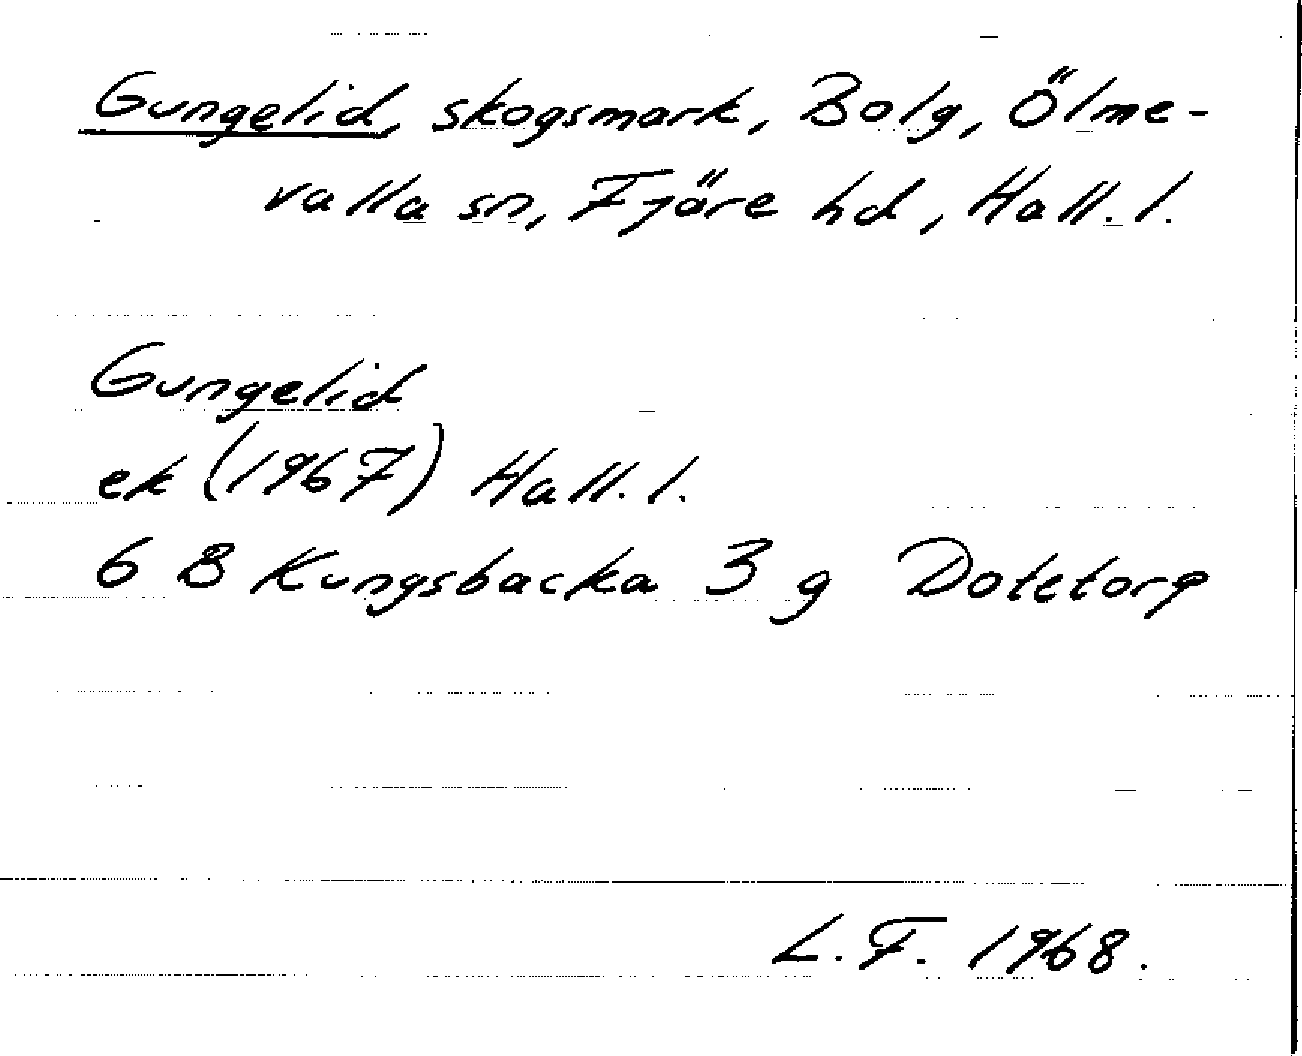 Gungelid, skogsmark, Bolg, Ölme-
valla sn, Fjäre hd, Hall. l.
Gungelid
ek (1967) Hall. l.
6 B Kungsbacka 3 g Dotetorp
L.F. 1968.